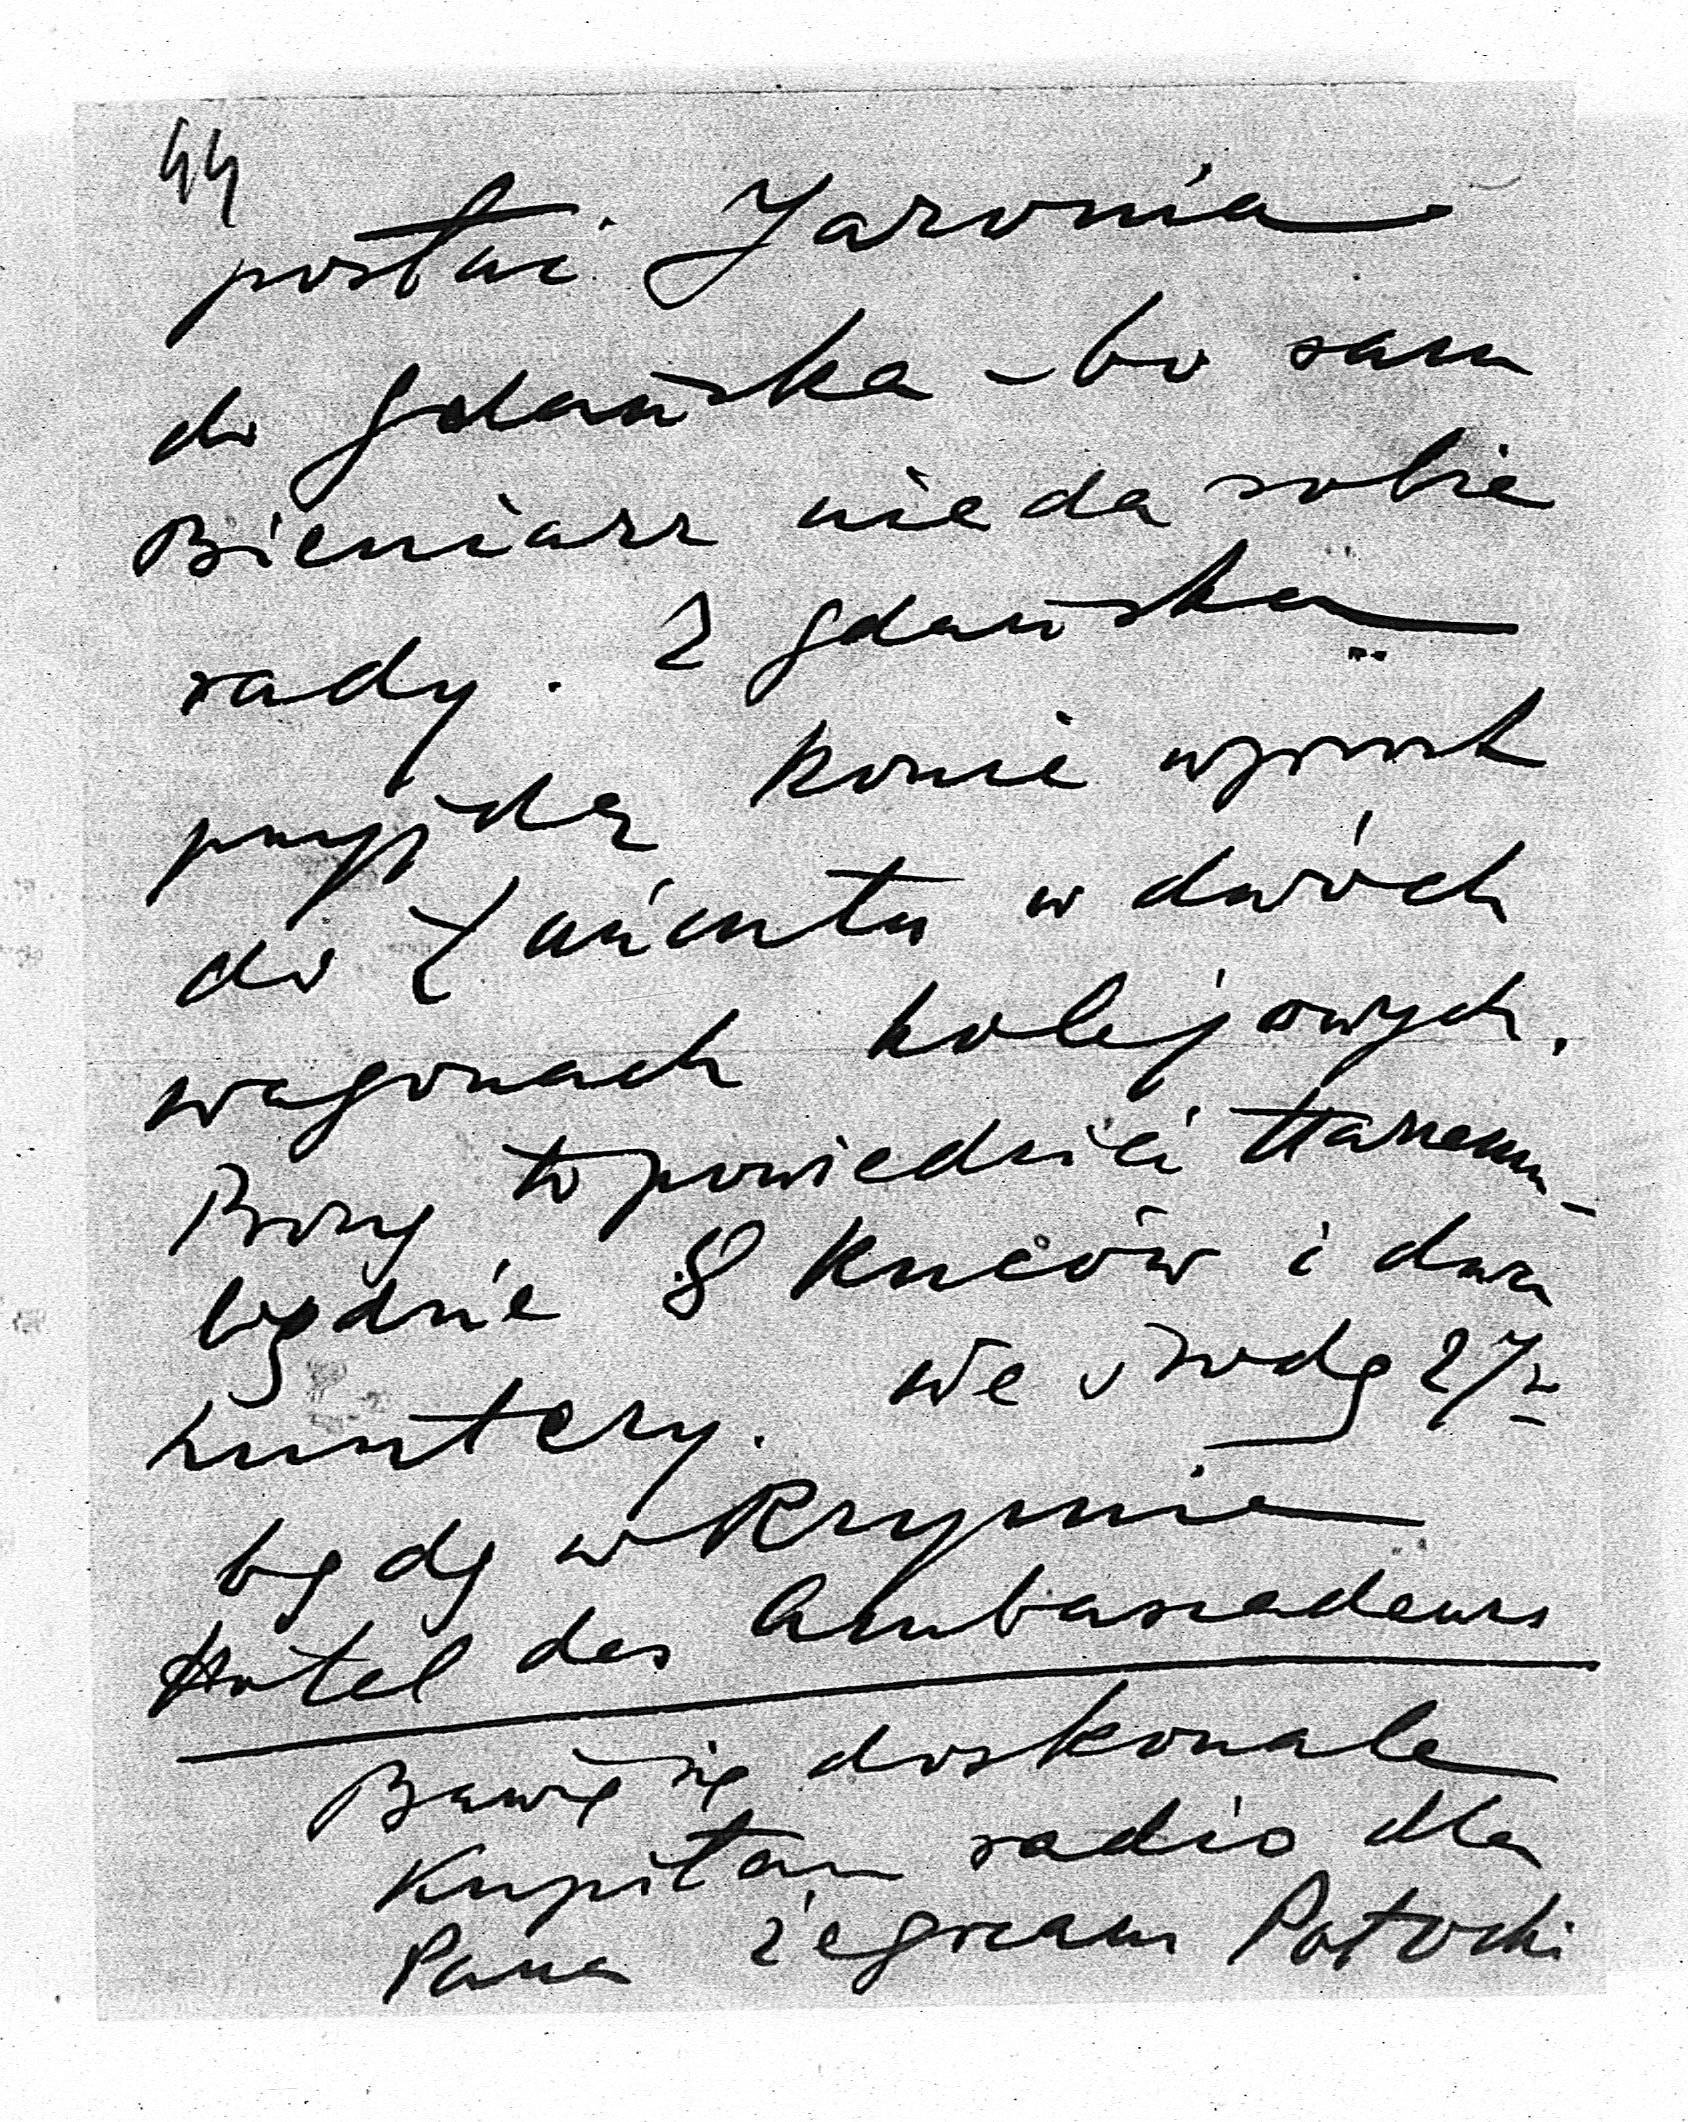 44
posłać Jaronia
do Gdańska – bo sam
Bieniasz nie da sobie
rady. Z Gdańska
przyjdą konie wprost
do Łańcuta w dwóch
wagonach kolejowych.
Proszę to powiedzieć
będzie 8 kuców i dwa
huntery. We środę 27go
będę w Rzymie
Hotel des Ambassadeurs
Bawię się doskonale
Kupiłam radio dla
Pana żegnam Potocki